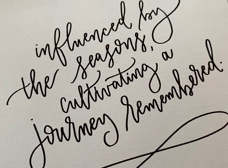 influenced by
the seasons,
cultivating a
journey remembered.